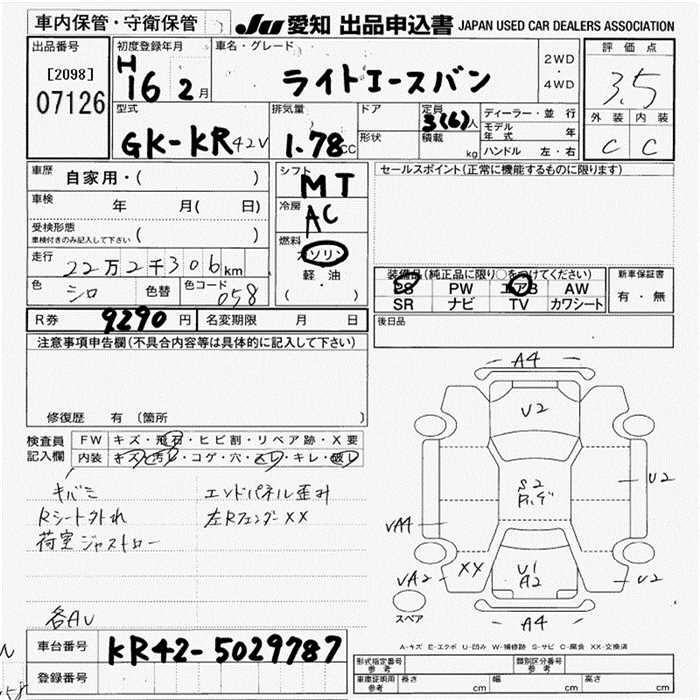 車内保管・守衛保管
JU 愛知 出品申込書 JAPAN USED CAR DEALERS ASSOCIATION
出品番号
[2098]
07126
初度登録年月
H
16 2月
車名・グレード
ライトエースバン
2WD
・
4WD
評価点
3.5
外装 内装
C C
型式
GK-KR42V
排気量
1.78cc
ドア
形状
定員
3(6)人
積載
kg
ディーラー・並行
モデル年式 年
ハンドル 左・右
車歴
自家用・( )
車検
年 月( 日)
受検形態
車検付きのみ記入して下さい ( )
走行
22万2千306km
色
シロ
色替
色コード
058
シフト
MT
冷房
AC
燃料
ガソリン
軽・油
( )
セールスポイント(正常に機能するものに限ります)
装備品(純正品に限り○をつけてください)
PS PW エアB AW
SR ナビ TV カワシート
新車保証書
有・無
後日品
R券 9290円
名変期限 月 日
注意事項申告欄(不具合内容等は具体的に記入して下さい)
修復歴 有 〔箇所 〕
検査員
記入欄
FW キズ・飛石・ヒビ割・リペア跡・X要
内装 キズ・汚レ・コゲ・穴・スレ・キレ・破レ
キバミ
エンドパネル歪み
Rシート外れ
左Rフェンダー××
荷室ジャストロー
各AU
A4
U2
S2
U2
VA4
VA2
XX
U1
A2
U2
A4
スペア
A-キズ E-エクボ U-凹み W-補修跡 S-サビ C-腐食 XX-交換済
車台番号
KR42-5029787
登録番号
形式指定番号
参考
類別区分番号
参考
車庫証明用
参考
長さ cm
幅 cm
高さ cm